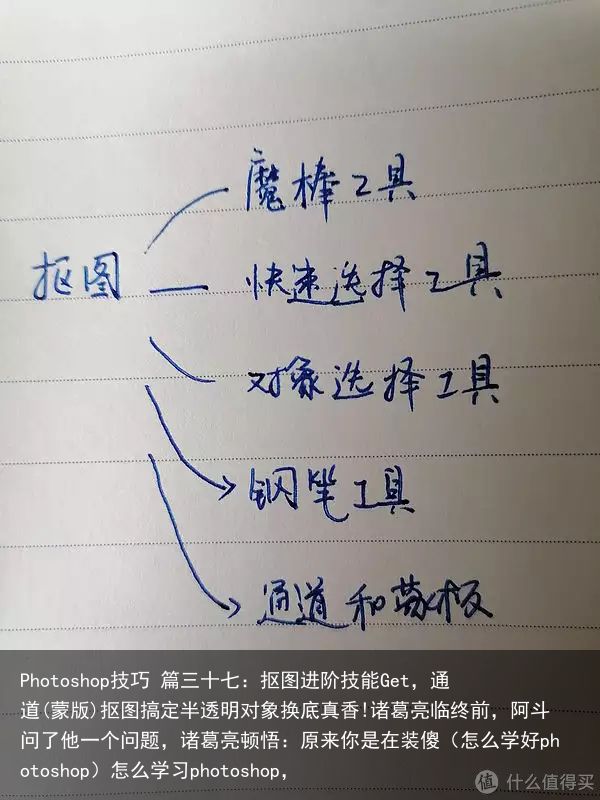 魔棒工具
抠图
快速选择工具
对象选择工具
钢笔工具
通道和蒙板
Photoshop技巧 篇三十七：抠图进阶技能Get，通
道(蒙版)抠图搞定半透明对象换底真香!诸葛亮临终前，阿斗
问了他一个问题，诸葛亮顿悟：原来你是在装傻（怎么学好ph
otoshop）怎么学习photoshop，
值 什么值得买